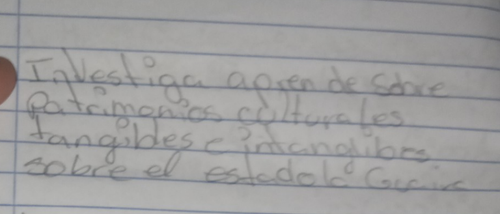 Investiga aprende sobre
Patrimonios culturales
tangibles e intangibles
sobre el estado